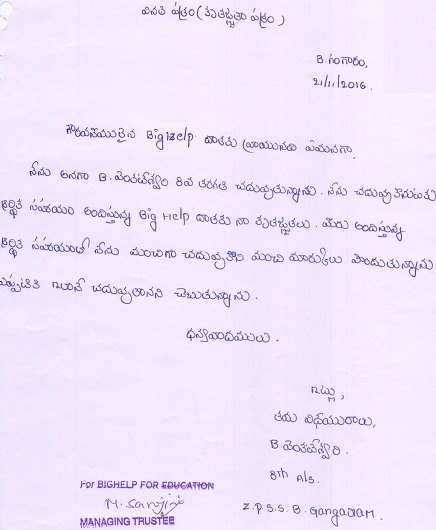 వినతి పత్రం (కృతజ్ఞతా పత్రం)
B. గంగారం,
21/11/2016.
గౌరవనీయులైన BigHelp దాతకు వ్రాయునది ఏమనగా.
నేను అనగా B. వెంకటేశ్వరి 8వ తరగతి చదువుతున్నాను. నేను చదువుకొనుటకు
ఆర్థిక సహాయం అందిస్తున్న Big Help దాతకు నా కృతజ్ఞతలు. మీరు అందిస్తున్న
ఆర్థిక సహాయంతో నేను మంచిగా చదువుకొని మంచి మార్కులు పొందుతున్నాను
ఎప్పటికి ఇలానే చదువుతానని చెబుతున్నాను.
ధన్యవాదములు.
ఇట్లు,
తమ విధేయురాలు,
B. వెంకటేశ్వరి.
8th
Z.P.S.S. B. Gangaram.
For BIGHELP FOR EDUCATION
MANAGING TRUSTEE